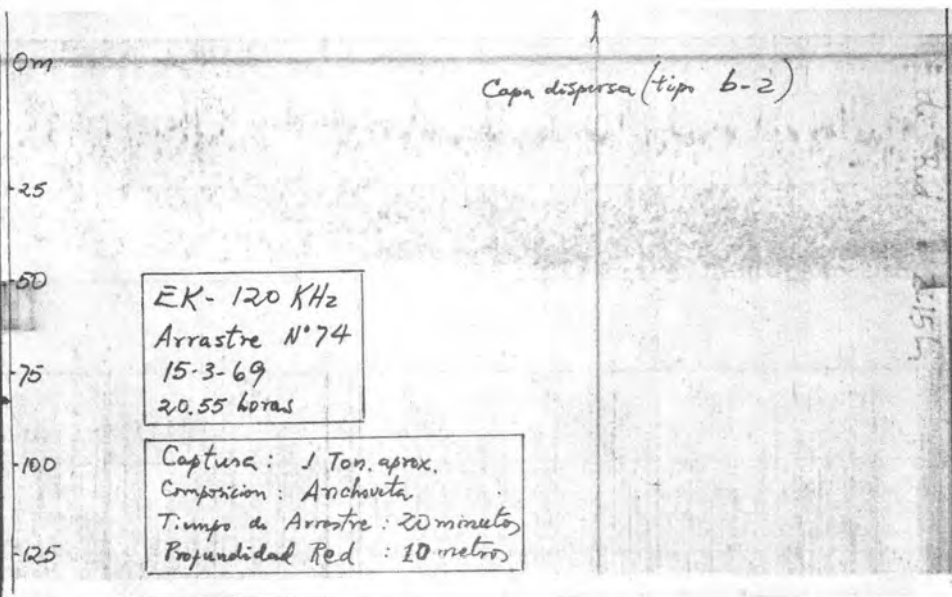 0m
Capa dispersa (tipo b-2)
25
50
75
100
125
EK - 120 KHz
Arrastre N° 74
15-3-69
20.55 horas
Captura : 1 Ton. aprox.
Composicion : Anchoveta
Tiempo de Arrastre : 20 minutos
Profundidad Red : 10 metros